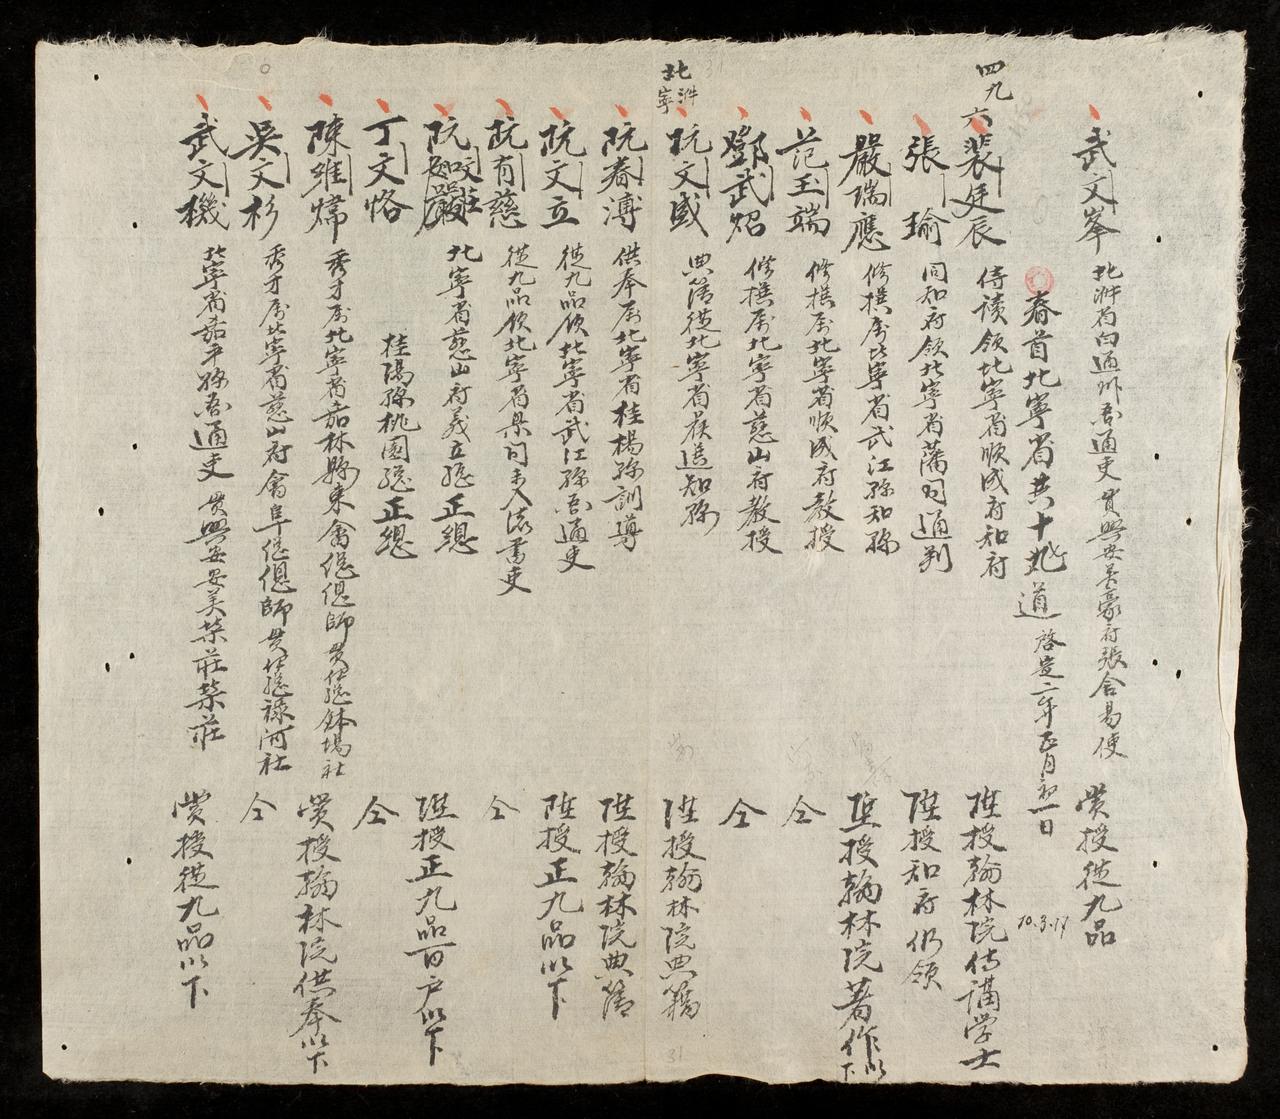 武文峯 北泮省白通州吾通吏 貫興安吴豪府張舍易使 賞授從九品
春首北寧省共十九道 啓定二年正月初一日
10.3.17
四九六
裴廷辰 侍读領北寧省順成府知府 陞授翰林院侍講学士
張瑜 同知府領北寧省藩司通判 陞授知府仍領
嚴瑞應 修撰屬北寧省武江縣知縣 陞授翰林院著作以下
范玉端 修撰屬北寧省順成府教授 仝
鄧武炤 修撰屬北寧省慈山府教授 仝
北泮
北寧
阮文盛 典簿從北寧省候選知縣 陞授翰林院典籍
阮春溥 供奉屬北寧省桂楊縣訓導 陞授翰林院典簿
阮文立 從九品領北寧省武江縣吾通吏 陞授正九品以下
阮有慈 從九品領北寧省臬司未入流書吏 仝
阮如嚴 北寧省慈山府義立總正總 陞授正九品百户以下
丁文恪 桂陽縣桃園總正總 仝
陳維煒 秀才屬北寧省嘉林縣東畬總總師 貫鉢場社 賞授翰林院供奉以下
吳文杉 秀才屬北寧省慈山府畬阜總總師 貫禄河社 仝
武文機 北寧省嘉平縣吾通吏 貫興安安美荣莊荣莊 賞授從九品以下
31